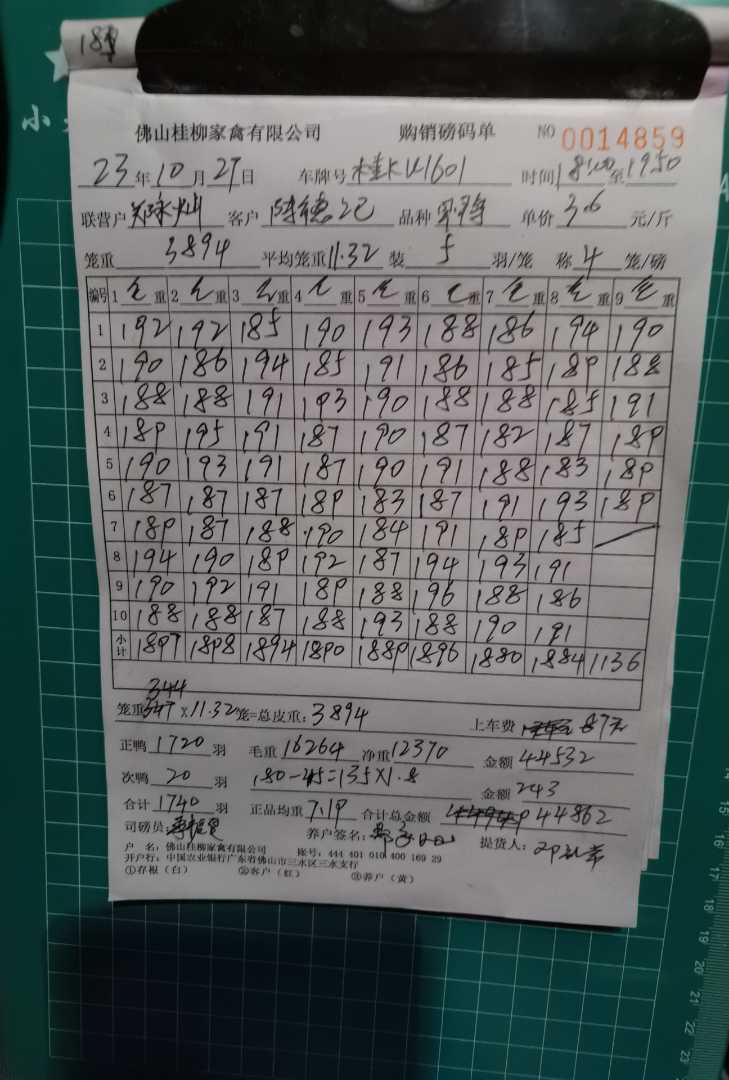 189
小
佛山桂柳家禽有限公司 购销磅码单 NO 0014859
23年10月27日 车牌号桂KU1601 时间18:00至1950
联营户 客户 陈德记 品种 单价3.6元/斤
笼重3894 平均笼重11.32 装5羽/笼 称4笼/磅
编号 1毛重 2毛重 3毛重 4毛重 5毛重 6毛重 7毛重 8毛重 9毛重
1 192 192 185 190 193 188 186 194 190
2 190 186 194 185 191 186 185 189 188
3 188 188 191 193 190 188 188 185 191
4 189 195 191 187 190 187 182 187 189
5 190 193 191 187 190 191 188 183 189
6 187 187 187 189 183 187 191 193 189
7 189 187 188 190 184 191 189 185
8 194 190 189 192 187 194 193 191
9 190 192 191 189 188 196 188 186
10 188 188 187 188 193 188 190 191
小计 1897 1898 1894 1890 1889 1896 1880 1884 1136
344
笼重347×11.32笼=总皮重:3894 上车费 87元
正鸭1720羽 毛重16264 净重12370 金额44532
次鸭20羽 180-45=135×1.8 金额243
合计1740羽 正品均重7.19 合计总金额 44862
司磅员: 养户签名: 提货人:
户 名:佛山桂柳家禽有限公司 账号:444 401 010 400 169 29
开户行:中国农业银行广东省佛山市三水区三水支行
①存根(白) ②客户(红) ③养户(黄)
14
15
16
17
18
19
20
21
22
23